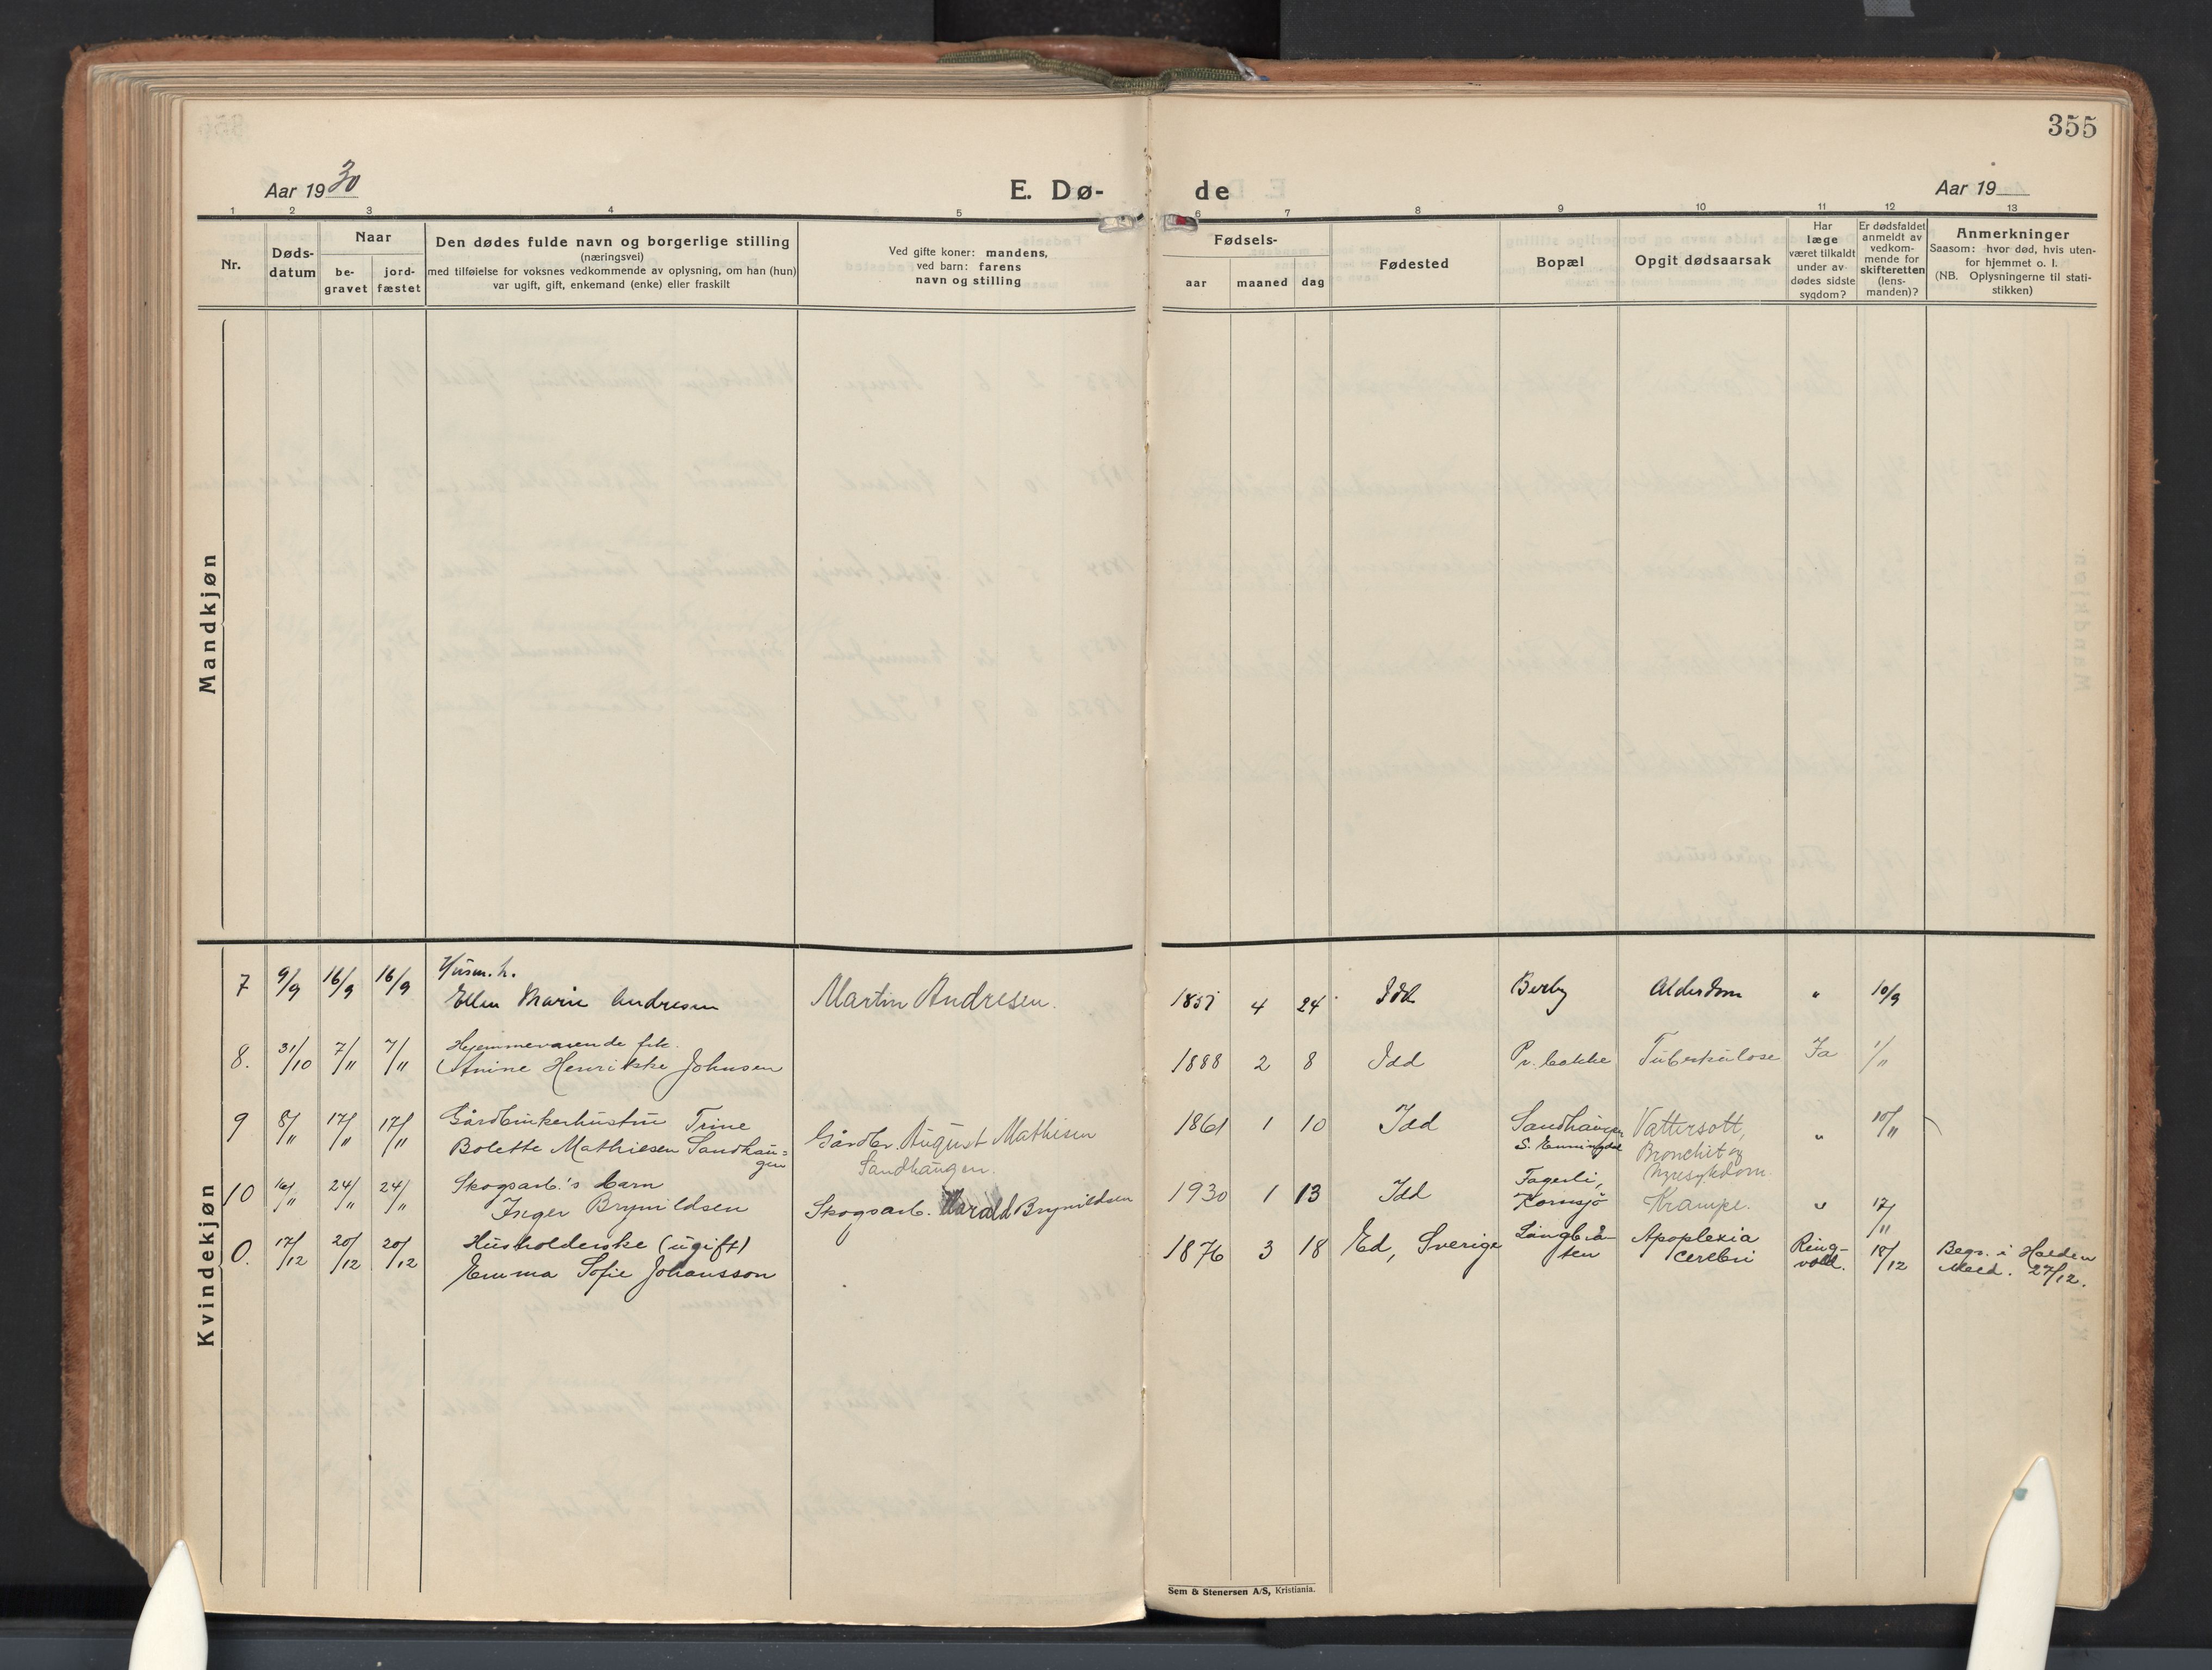 355
Aar 1930
E. Dø-
de
Aar 19
1 2 3 4 5 6 7 8 9 10 11 12 13
Nr.
Døds-
datum
Naar
be-
gravet
jord-
fæstet
Den dødes fulde navn og borgerlige stilling
(næringsvei)
med tilføielse for voksnes vedkommende av oplysning, om han (hun)
var ugift, gift, enkemand (enke) eller fraskilt
Ved gifte koner: mandens,
ved barn: farens
navn og stilling
Fødsels-
aar maaned dag
Fødested
Bopæl
Opgit dødsaarsak
Har
læge
været tilkaldt
under av-
dødes sidste
sygdom?
Er dødsfaldet
anmeldt av
vedkom-
mende for
skifteretten
(lens-
manden)?
Anmerkninger
Saasom: hvor død, hvis uten-
for hjemmet o. l.
(NB. Oplysningerne til stati-
stikken)
Mandkjøn
Kvindekjøn
Husm. h.
7 9/9 16/9 16/9 Ellen Marie Andresen Martin Andresen. 4 24 Idd Berby Alderdom " 10/9
Hjemmeværende frk.
8. 31/10 7/11 7/11 Anine Henrikke Johnsen 1888 2 8 Idd Pr. bakke Tuberkulose Ja 1/11
9 8/11 17/11 17/11 Gårdbrukerhustru Trine Gårdbr. August Mathisen 1861 1 10 Idd Sandhaugen Vattersott, " 10/11
Bolette Mathiesen Sandhau= Sandhaugen. S. Enningdal Bronchit og
gen Nyresykdom.
10 16/11 24/11 24/11 Skogsarb.'s barn Skogsarb. Harald Brynildsen 1930 1 13 Idd Fagerli, Krampe. " 17/11
Inger Brynildsen Kornsjø
0. 17/12 20/12 20/12 Husholderske (ugift) 1876 3 18 Ed, Sverige Langbrå- Apoplexia Ring- 18/12 Begr. i Halden
Emma Sofie Johansson ten cerebri vold. Medd. 27/12.
Sem & Stenersen A/S, Kristiania.